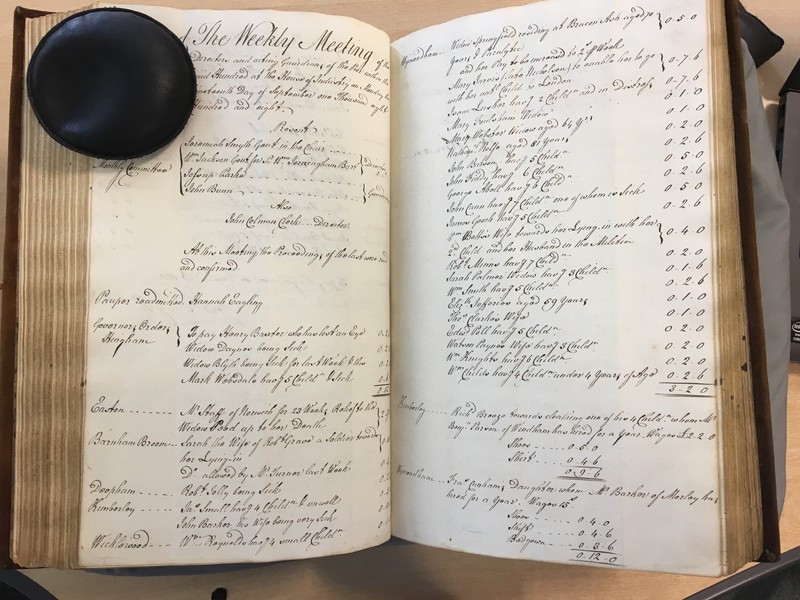 The Weekly Meeting of the
Directors and acting Guardians of the Poor within the
said Hundred at the House of Industry on Monday the
Day of September one Thousand eight
Hundred and eight.
Present
Jeremiah Smyth Gent in the Chair
Wm Jackson Gent for Sr Wm Jerningham Bart
Jessup Barker
John Bunn
Monthly Committee
Also
John Colman Clerk .... Director
At this Meeting the Proceedings of the last were read
and confirmed
Pauper readmitted. Hannah Eagling
Governors Orders
Hingham
To pay Henry Baxter who has lost an Eye
Widow Daynes being Sick
Widow Blyth being Sick for last Week & this
Mark Wobsdale havg 5 Childn & Sick
Easton
Mr Staff of Norwich for 23 Weeks Relief to the
Widow Pead up to her Death
Barnham Broom
Sarah the Wife of Robt Grave a Soldier towards
her Lying-in
Do allowed by Mr Turner last Week
Deopham
Robt Jolly being Sick
Kimberley
Jas Small havg 4 Childn & unwell
John Barker his Wife being very Sick
Wicklewood
Wm Reynolds havg 4 small Childn
Wymondham
Widow Springfield residing at Bracon Ash aged 70
Years & Paralytic 0.5.0
and her Pay to be increased to 2s/ Week
Mary Jarvis (late Nicholson) to enable her to go
with her natl Child to London 0.7.6
Isaac Lusher havg 2 Childn and in Distress 0.7.6
Mary Fulsham Widow 0.1.0
Mary Webster Widow aged 64 Yrs 0.1.0
Wife aged 81 Years 0.2.0
John Bateson havg 5 Childn 0.2.6
John Tiddy havg 6 Childn 0.5.0
George Aboll havg 6 Childn 0.2.6
John Cann havg 7 Childn one of whom is Sick 0.5.0
James Gooch havg 5 Childn 0.2.6
Wm Betts's Wife towards her Lying in with her
2nd Child and her Husband in the Militia 0.4.0
Robt Minns havg 7 Childn 0.2.0
Sarah Palmer Widow havg 3 Childn 0.1.6
Wm Smith havg 5 Childn 0.2.6
Elizth Jefferies aged 59 Years 0.1.0
Thos Clarkes Wife 0.1.0
Edwd Poll havg 5 Childn 0.2.0
Watson Paynes Wife havg 5 Childn 0.2.0
Wm Knights havg 6 Childn 0.2.0
Wm Childs havg 4 Childn under 4 Years of Age 0.2.6
3.2.0
Kimberley
Richd Breeze towards cloathing one of his 4 Childn whom Mr
Benjn Parson of Windham has hired for a Year Wages £2.2.0
Shoes 0.5.0
Shirt 0.4.6
0.9.6
Wymondham
Fras Cunhams Daughter whom Mr Barker of Morley has
hired for a Year Wages 15s/
Shoes 0.4.0
Shift 0.4.6
Bedgown 0.3.6
0.12.0